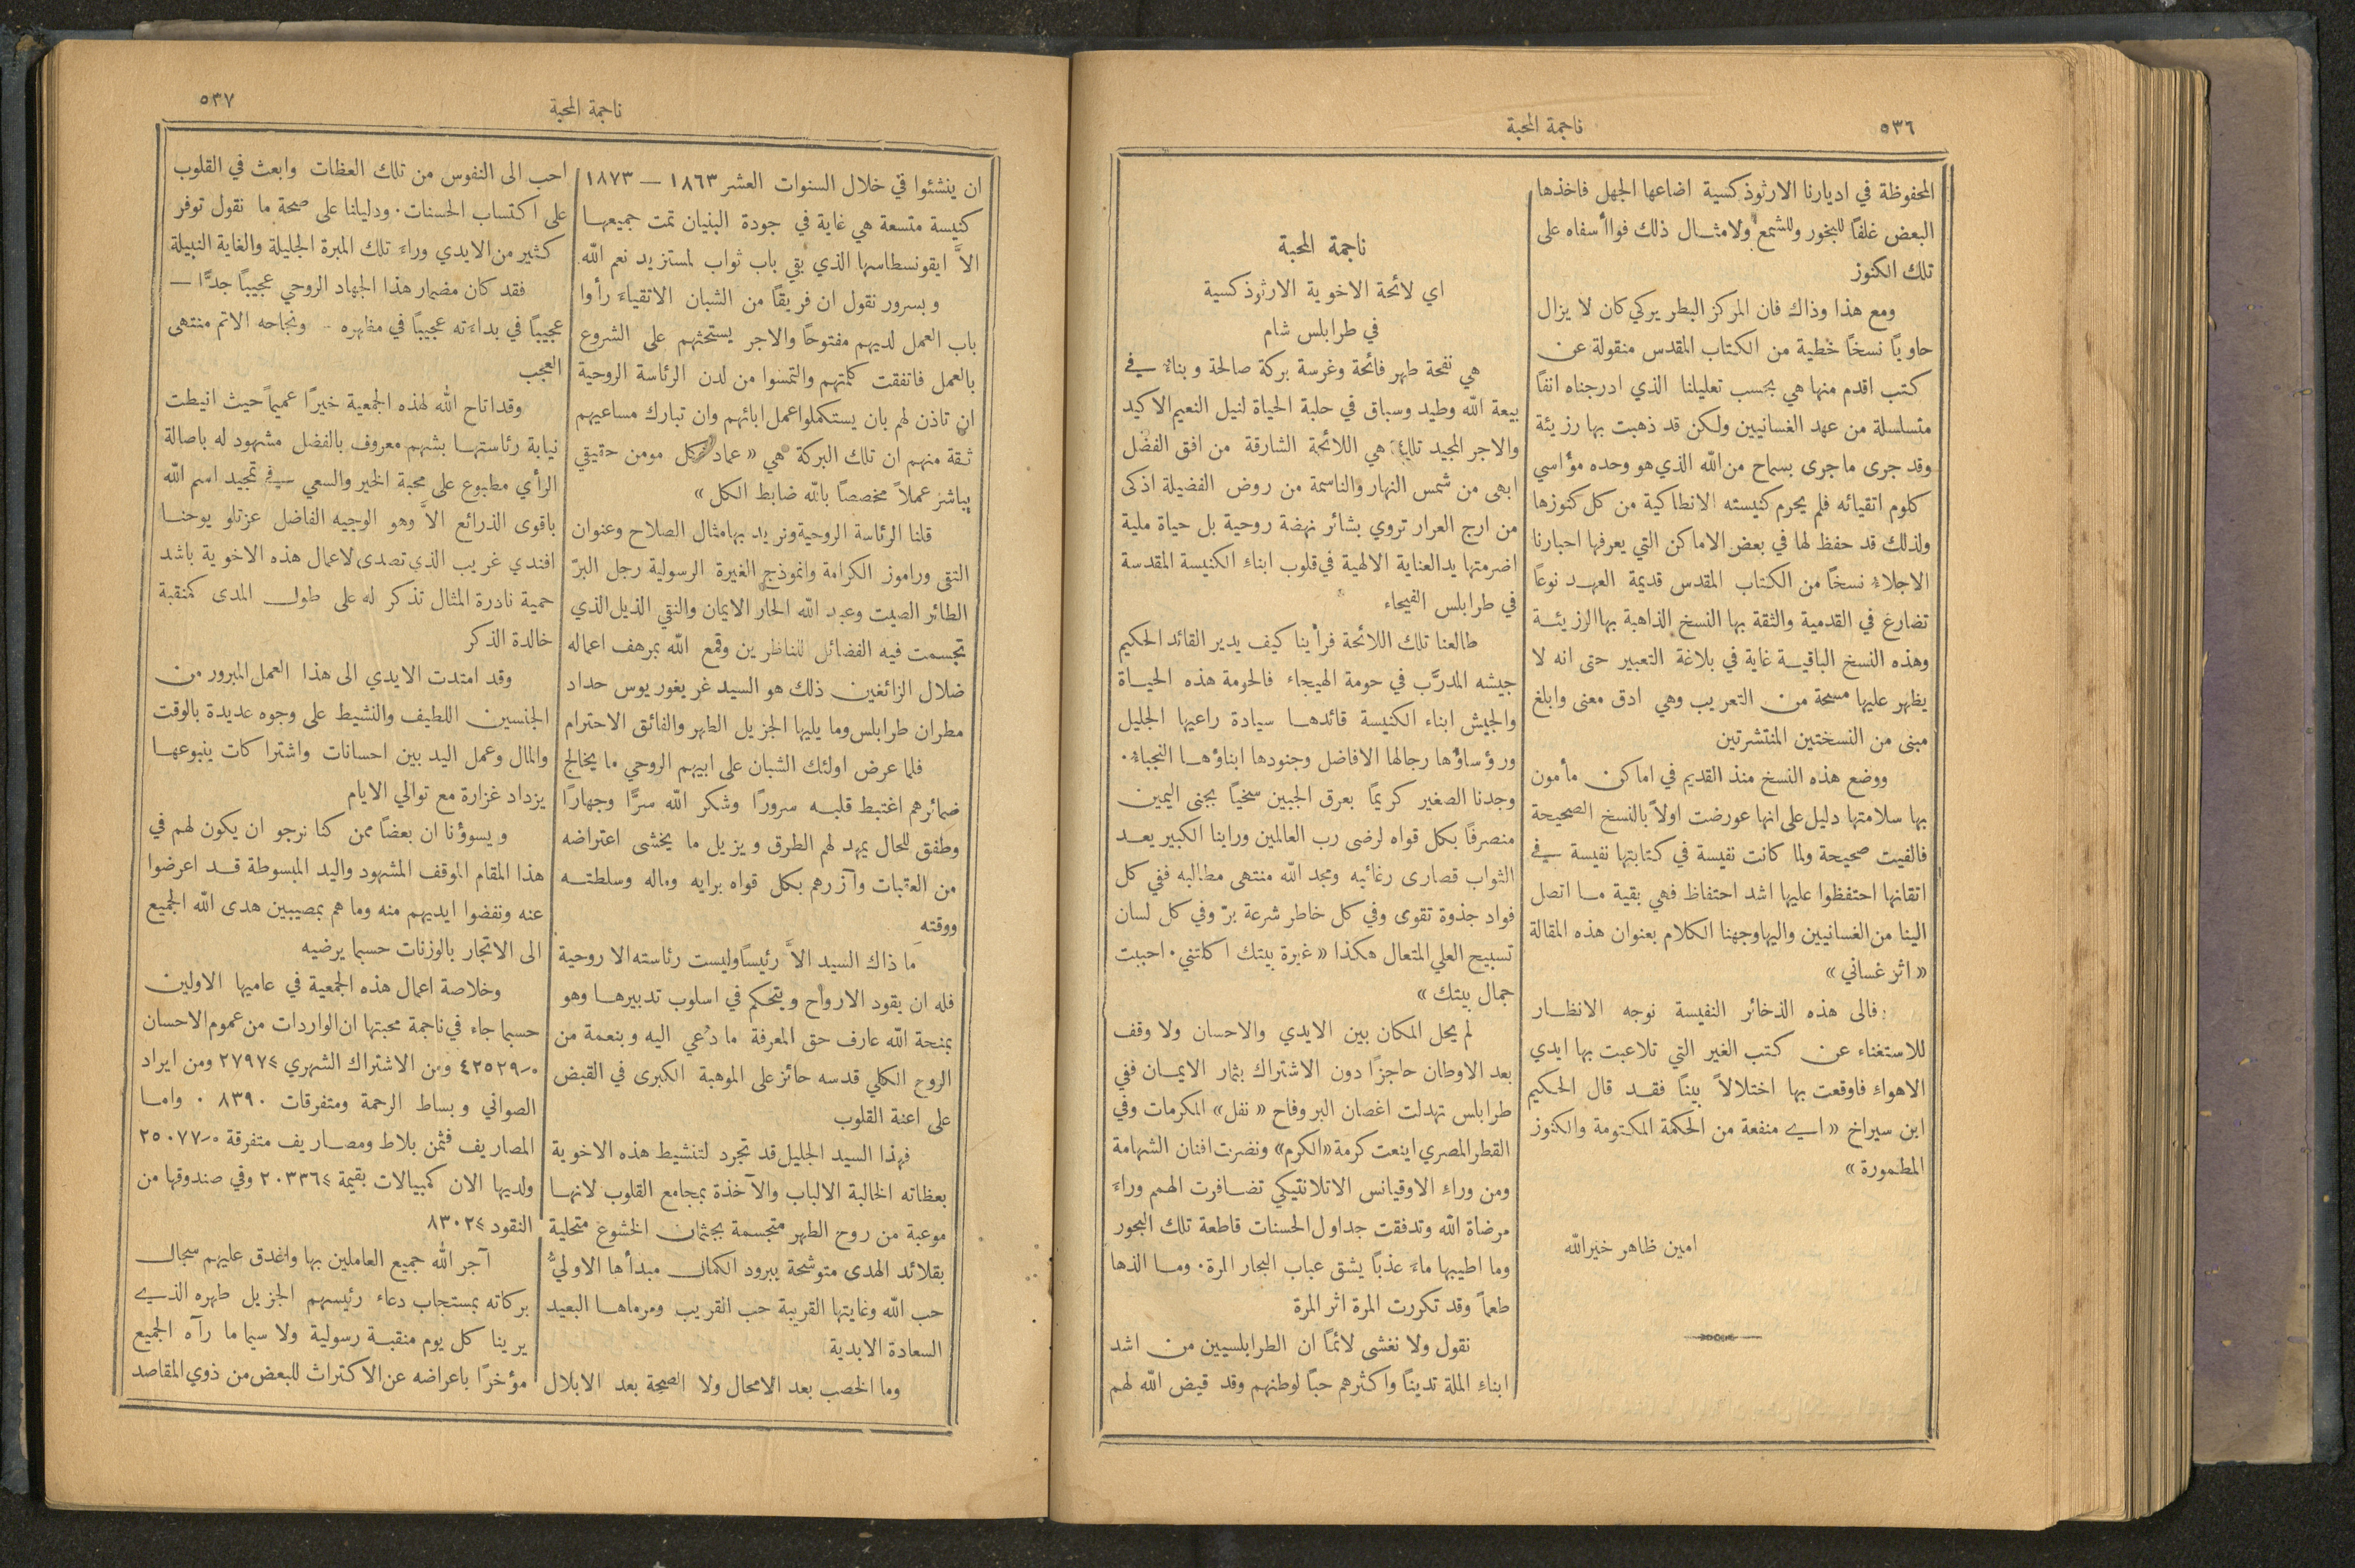 ٥٣٦
ناجمة المحبة
المحفوظة في اديارنا الارثوذكسية اضاعها الجهل فاخذها
البعض غلفًا للبخور وللشمع ولامثال ذلك فوا أسفاه على
تلك الكنوز
ومع هذا وذاك فان المركز البطريركي كان لا يزال
حاويًا نسخًا خطية من الكتاب المقدس منقولة عن
كتب اقدم منها هي بحسب تعليلنا الذي ادرجناه انفًا
متسلسلة من عهد الغسانيين ولكن قد ذهبت بها رزيئة
وقد جرى ما جرى بسماح من الله الذي هو وحده مؤاسي
كلوم اتقيائه فلم يحرم كنيسته الانطاكية من كل كنوزها
ولذلك قد حفظ لها في بعض الاماكن التي يعرفها احبارنا
الاجلاء نسخًا من الكتاب المقدس قديمة العهد نوعًا
تضارع في القدمية والثقة بها النسخ الذاهبة بها الرزيئة
وهذه النسخ الباقية غاية في بلاغة التعبير حتى انه لا
يظهر عليها مسحة من التعريب وهي ادق معنى وابلغ
مبنى من النسختين المنتشرتين
ووضع هذه النسخ منذ القديم في اماكن مأمون
بها سلامتها دليل على انها عورضت اولاً بالنسخ الصحيحة
فالفيت صحيحة ولما كانت نفيسة في كتابتها نفيسة في
اتقانها احتفظوا عليها اشد احتفاظ فهي بقية ما اتصل
الينا من الغسانيين واليها وجهنا الكلام بعنوان هذه المقالة
« اثر غساني »
فالى هذه الذخائر النفيسة نوجه الانظار
للاستغناء عن كتب الغير التي تلاعبت بها ايدي
الاهواء فاوقعت بها اختلالاً بينًا فقد قال الحكيم
ابن سيراخ « اي منفعة من الحكمة المكتومة والكنوز
المطمورة »
امين ظاهر خيرالله
ناجمة المحبة
اي لائحة الاخوية الارثوذكسية
في طرابلس شام
هي نفحة طهر فائحة وغرسة بركة صالحة وبناء في
بيعة الله وطيد وسباق في حلبة الحياة لنيل النعيم الاكيد
والاجر المجيد تلك هي اللائحة الشارقة من افق الفضل
ابهى من شمس النهار والناسمة من روض الفضيلة اذكى
من ارج العرار تروي بشائر نهضة روحية بل حياة ملية
اضرمتها يد العناية الالهية في قلوب ابناء الكنيسة المقدسة
في طرابلس الفيحاء
طالعنا تلك اللائحة فرأينا كيف يدير القائد الحكيم
جيشه المدرَّب في حومة الهيجاء فالحومة هذه الحياة
والجيش ابناء الكنيسة قائدها سيادة راعيها الجليل
ورؤساؤها رجالها الافاضل وجنودها ابناؤها النجباء.
وجدنا الصغير كريمًا بعرق الجبين سخيًا بجنى اليمين
منصرفًا بكل قواه لرضى رب العالمين وراينا الكبير يعد
الثواب قصارى رغائبه ومجد الله منتهى مطالبه ففي كل
فواد جذوة تقوى وفي كل خاطر شرعة برّ وفي كل لسان
تسبيح العلي المتعال هكذا « غيرة بيتك اكلتني . احببت
جمال بيتك »
لم يحل المكان بين الايدي والاحسان ولا وقف
بعد الاوطان حاجزًا دون الاشتراك بثمار الايمان ففي
طرابلس تهدلت اغصان البر وفاح « نفل » المكرمات وفي
القطر المصري اينعت كرمة « الكرم » ونضرت افنان الشهامة
ومن وراء الاوقيانس الاتلانتيكي تضافرت الهمم وراء
مرضاة الله وتدفقت جداول الحسنات قاطعة تلك البحور
وما اطيبها ماء عذبًا يشق عباب البحار المرة . وما الذها
طعمًا وقد تكررت المرة اثر المرة
نقول ولا نغشى لائمًا ان الطرابلسيين من اشد
ابناء الملة تدينًا واكثرهم حبًا لوطنهم وقد قيض الله لهم
ناجمة المحبة
٥٣٧
ان ينشئوا في خلال السنوات العشر ١٨٦٣ — ١٨٧٣
كنيسة متسعة هي غاية في جودة البنيان تمت جميعها
الاَّ ايقونسطاسها الذي بقي باب ثواب لمستزيد نعم الله
وبسرور نقول ان فريقًا من الشبان الاتقياء رأوا
باب العمل لديهم مفتوحًا والاجر يستحثهم على الشروع
بالعمل فاتفقت كلمتهم والتمسوا من لدن الرئاسة الروحية
ان تاذن لهم بان يستكملوا عمل ابائهم وان تبارك مساعيهم
ثقة منهم ان تلك البركة هي « عماد كل مومن حقيقي
يباشر عملاً مخصصًا بالله ضابط الكل »
قلنا الرئاسة الروحية ونريد بها مثال الصلاح وعنوان
التقى وراموز الكرامة وانموذج الغيرة الرسولية رجل البرّ
الطائر الصيت وعبد الله الحار الايمان والنقي الذيل الذي
تجسمت فيه الفضائل للناظرين وقمع الله بمرهف اعماله
ضلال الزائغين ذلك هو السيد غريغوريوس حداد
مطران طرابلس وما يليها الجزيل الطهر والفائق الاحترام
فلما عرض اولئك الشبان على ابيهم الروحي ما يخالج
ضمائرهم اغتبط قلبه سرورًا وشكر الله سرًّا وجهارًا
وطفق للحال يمهد لهم الطرق ويزيل ما يخشى اعتراضه
من العتبات وآزرهم بكل قواه برايه وماله وسلطته
ووقته
ما ذاك السيد الاَّ رئيسًا وليست رئاسته الا روحية
فله ان يقود الارواح ويتحكم في اسلوب تدبيرها وهو
بمنحة الله عارف حق المعرفة ما دُعي اليه وبنعمة من
الروح الكلي قدسه حائز على الموهبة الكبرى في القبض
على اعنة القلوب
فهذا السيد الجليل قد تجرد لتنشيط هذه الاخوية
بعظاته الخالبة الالباب والآخذة بمجامع القلوب لانها
موعبة من روح الطهر متجسمة بجثمان الخشوع متحلية
بقلائد الهدى متوشحة ببرود الكمال مبدأها الاوليُّ
حب الله وغايتها القريبة حب القريب ومرماها البعيد
السعادة الابدية
وما الخصب بعد الامحال ولا الصحة بعد الابلال
احب الى النفوس من تلك العظات وابعث في القلوب
على اكتساب الحسنات . ودليلنا على صحة ما نقول توفر
كثير من الايدي وراء تلك المبرة الجليلة والغاية النبيلة
فقد كان مضمار هذا الجهاد الروحي عجيبًا جدًّا —
عجيبًا في بداءته عجيبًا في مظهره - ونجاحه الاتم منتهى
العجب
وقد اتاح الله لهذه الجمعية خيرًا عميمًا حيث انيطت
نيابة رئاستها بشهم معروف بالفضل مشهود له باصالة
الرأي مطبوع على محبة الخير والسعي في تمجيد اسم الله
باقوى الذرائع الاَّ وهو الوجيه الفاضل عزتلو يوحنا
افندي غريب الذي تصدى لاعمال هذه الاخوية باشد
حمية نادرة المثال تذكر له على طول المدى كمنقبة
خالدة الذكر
وقد امتدت الايدي الى هذا العمل المبرور من
الجنسين اللطيف والنشيط على وجوه عديدة بالوقت
والمال وعمل اليد بين احسانات واشتراكات ينبوعها
يزداد غزارة مع توالي الايام
ويسوؤنا ان بعضًا ممن كنا نرجو ان يكون لهم في
هذا المقام الموقف المشهود واليد المبسوطة قد اعرضوا
عنه ونفضوا ايديهم منه وما هم بمصيبين هدى الله الجميع
الى الاتجار بالوزنات حسبما يرضيه
وخلاصة اعمال هذه الجمعية في عاميها الاولين
حسبما جاء في ناجمة محبتها ان الواردات من عموم الاحسان
٤٢٥٢٩ ومن الاشتراك الشهري ٢٧٩٧ ومن ايراد
الصواني وبساط الرحمة ومتفرقات ٨٣٩٠ . واما
المصاريف فثمن بلاط ومصاريف متفرقة ٢٥٠٧٧
ولديها الان كمبيالات بقيمة ٢٠٣٣٦ وفي صندوقها من
النقود ٨٣٠٢
آجر الله جميع العاملين بها واغدق عليهم سجال
بركاته بمستجاب دعاء رئيسهم الجزيل طهره الذي
يرينا كل يوم منقبة رسولية ولا سيما ما رآه الجميع
مؤخرًا باعراضه عن الاكتراث للبعض من ذوي المقاصد